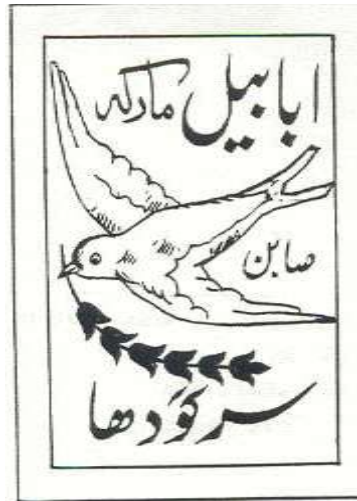 ابابیل مارکہ
صابن
سرگودھا